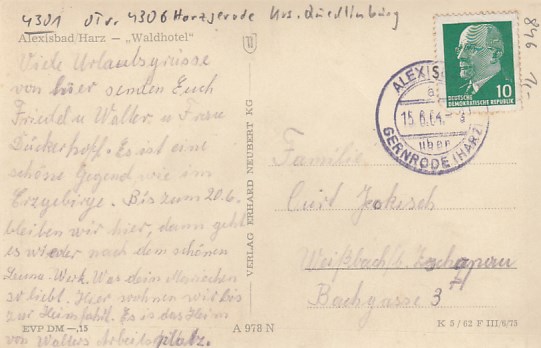 4301 üb. 4306 Harzgerode Krs. Quedlinburg
Alexisbad/Harz — „Waldhotel"
846
Viele Urlaubsgrüsse
von hier senden Euch
Friedel u Walter u Frau
Es ist eine
schöne Gegend wie im
Erzgebirge. Bis zum 20.6.
bleiben wir hier, dann geht
es wieder nach dem schönen
Leuna-Werk. Was dein Mariechen
so liebt. Hier wohnen wir bis
zur Heimfahrt. Es ist das Heim
von Walters Arbeitsplatz.
EVP DM —,15
A 978 N
VERLAG ERHARD NEUBERT KG
ALEXIS
15.6.64
über
GERNRODE (HARZ)
10
DEUTSCHE
DEMOKRATISCHE REPUBLIK
Familie
Curt
Weißbach/b. Zschopau
Bachgasse 3
K 5/62 F III/6/75